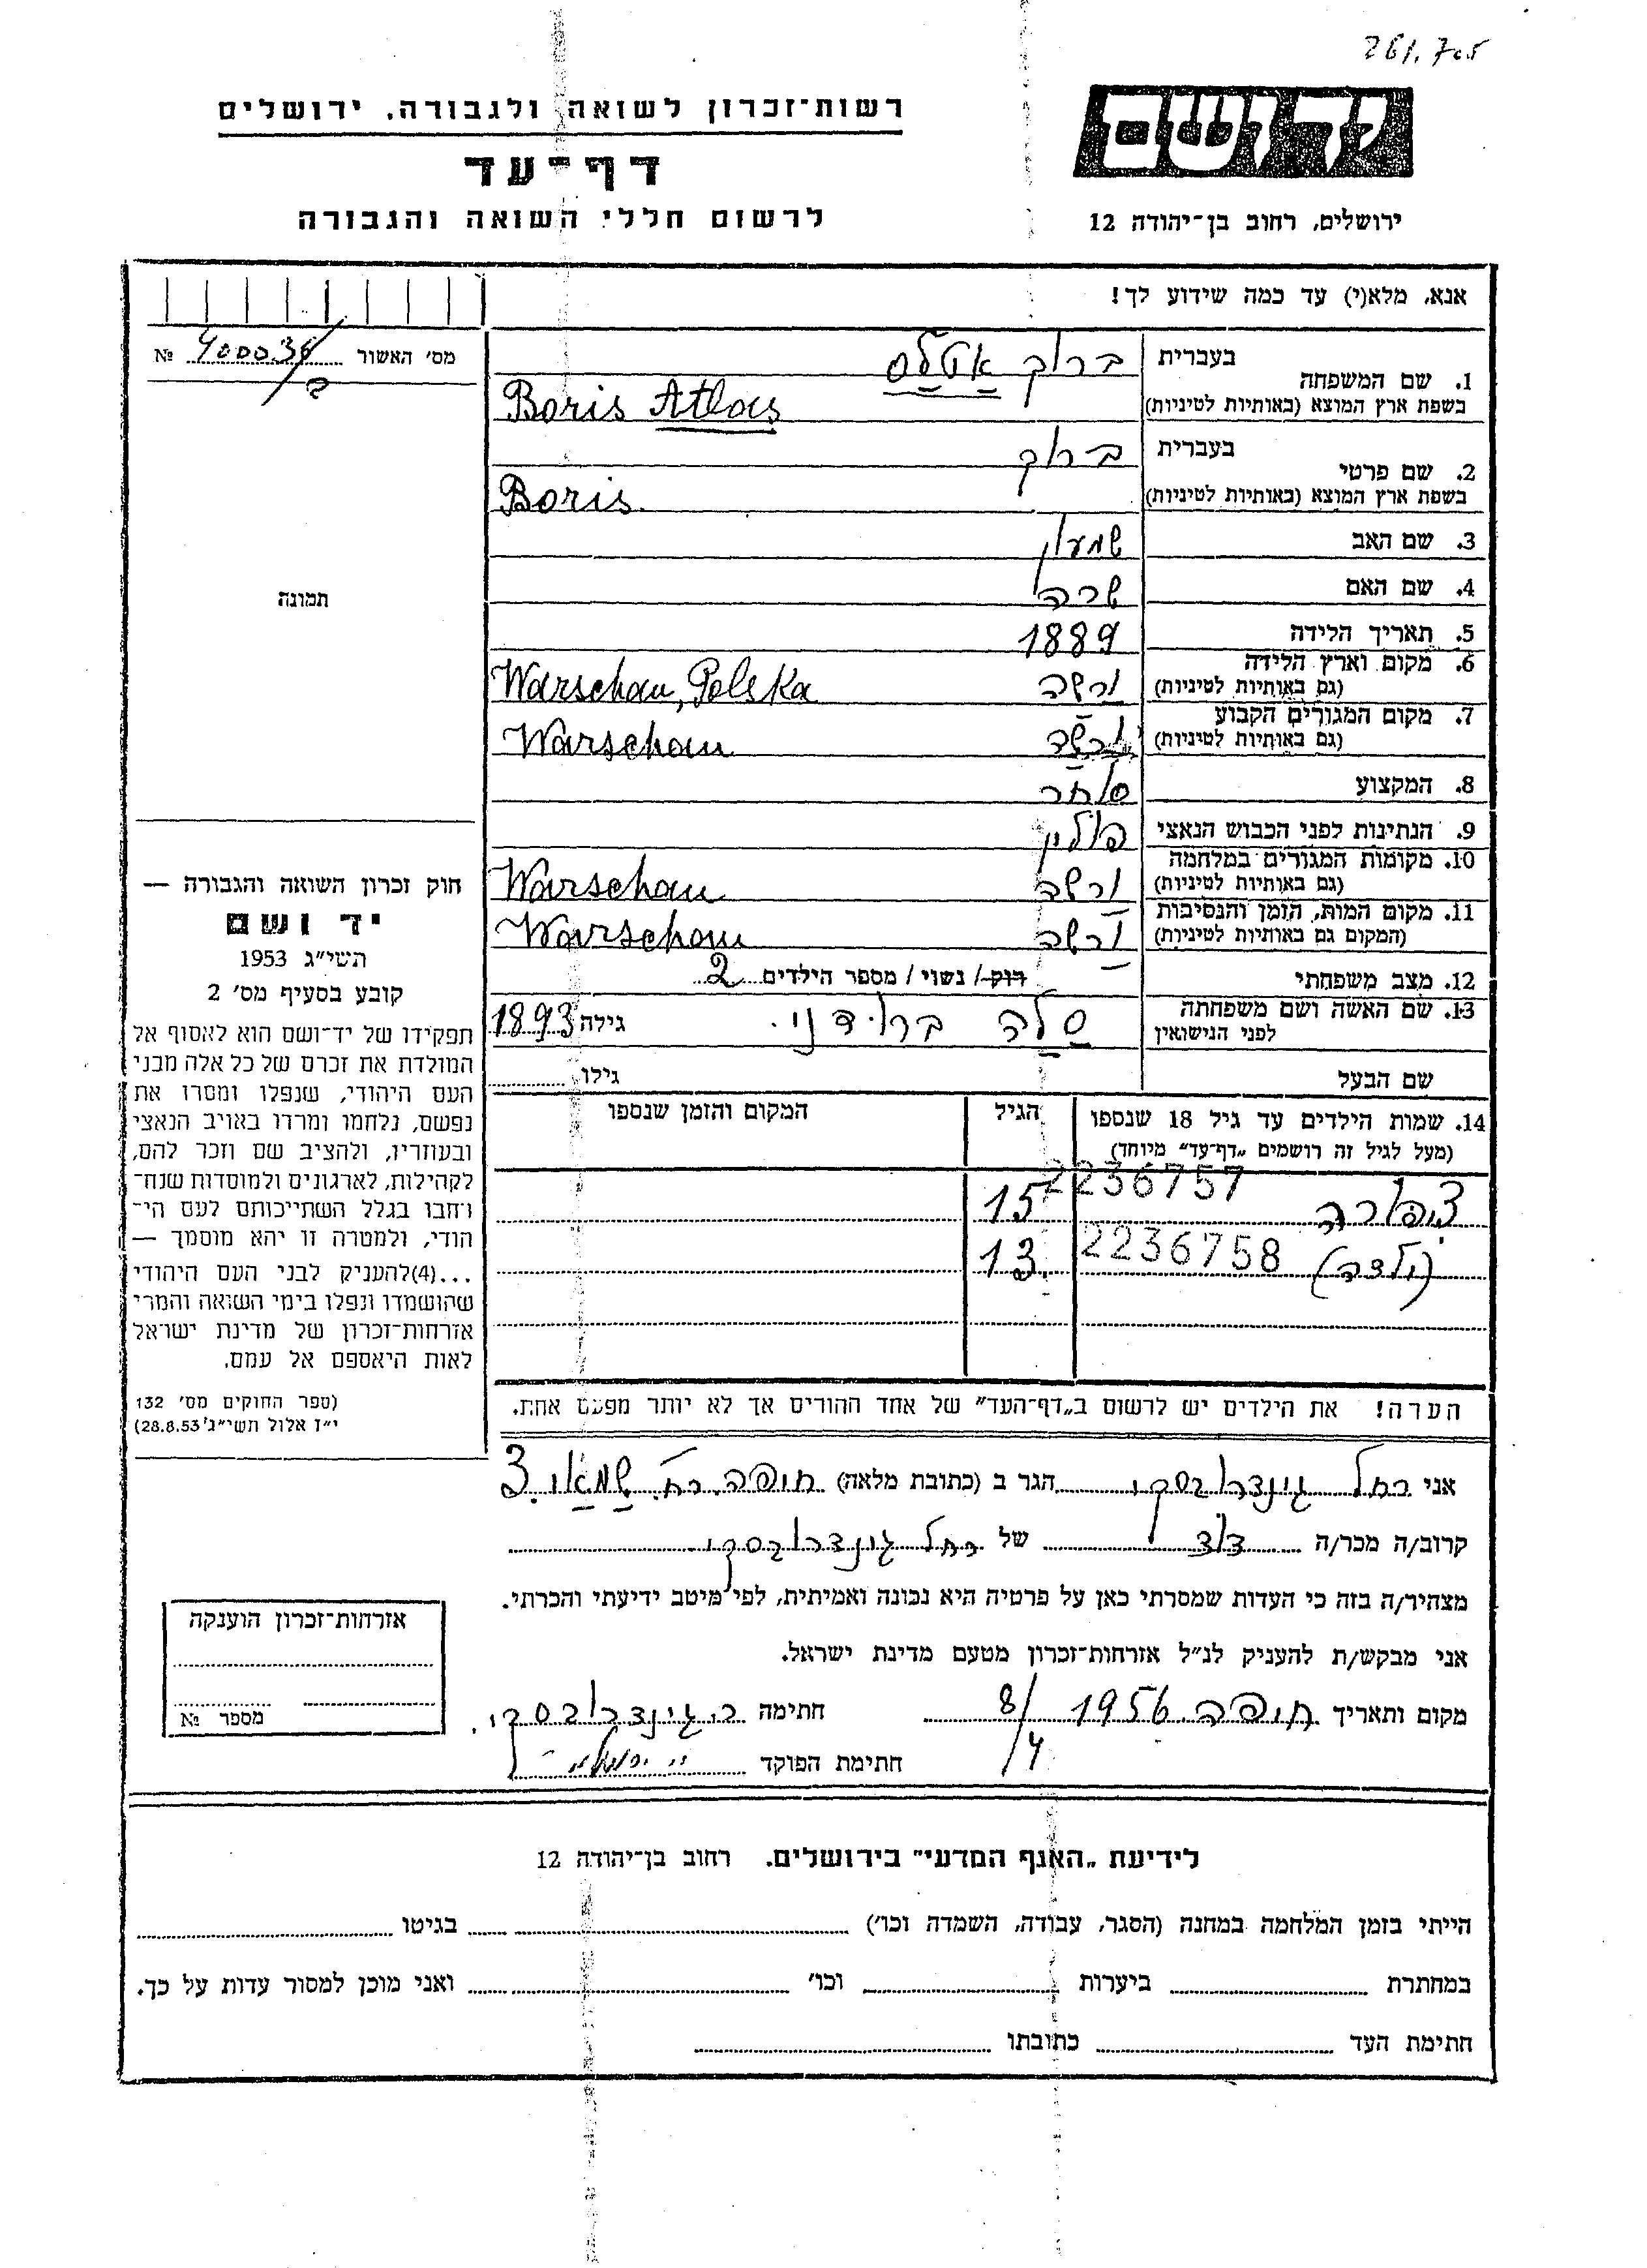 261.705
ידושם
ירושלים, רחוב בן־יהודה 12
רשות־זכרון לשואה ולגבורה, ירושלים
דף־עד
לרשום חללי השואה והגבורה
אנא, מלא(י) עד כמה שידוע לך!
מס׳ האשור № 400036/ב
1. שם המשפחה
בעברית ברוך אטלס
בשפת ארץ המוצא (באותיות לטיניות) Boris Atlas
2. שם פרטי
בעברית ברוך
בשפת ארץ המוצא (באותיות לטיניות) Boris
3. שם האב שמעון
4. שם האם שרה
5. תאריך הלידה 1889
6. מקום וארץ הלידה
(גם באותיות לטיניות) ורשה Warschau, Polska
7. מקום המגורים הקבוע
(גם באותיות לטיניות) ורשה Warschau
8. המקצוע סוחר
9. הנתינות לפני הכבוש הנאצי פולין
10. מקומות המגורים במלחמה
(גם באותיות לטיניות) ורשה Warschau
11. מקום המות, הזמן והנסיבות
(המקום גם באותיות לטיניות) ורשה Warschau
12. מצב משפחתי רוק / נשוי / מספר הילדים 2
13. שם האשה ושם משפחתה
לפני הנישואין סלה ברודני גילה 1893
שם הבעל גילו
תמונה
חוק זכרון השואה והגבורה —
יד ושם
תשי״ג 1953
קובע בסעיף מס׳ 2
תפקידו של יד־ושם הוא לאסוף אל
המולדת את זכרם של כל אלה מבני
העם היהודי, שנפלו ומסרו את
נפשם, נלחמו ומרדו באויב הנאצי
ובעוזריו, ולהציב שם וזכר להם,
לקהילות, לארגונים ולמוסדות שנח־
רחבו בגלל השתייכותם לעם הי־
הודי, ולמטרה זו יהא מוסמך —
...(4) להעניק לבני העם היהודי
שהושמדו ונפלו בימי השואה והמרי
אזרחות־זכרון של מדינת ישראל
לאות היאספם אל עמם.
(ספר החוקים מס׳ 132
י״ז אלול תשי״ג 28.8.53)
14. שמות הילדים עד גיל 18 שנספו
(מעל לגיל זה רושמים „דף־עד” מיוחד)
הגיל
המקום והזמן שנספו
2236757
צפורה 15
(ילדה) 2236758 13
הערה! את הילדים יש לרשום ב„דף־העד” של אחד ההורים אך לא יותר מפעם אחת.
אני רחל גונדרובסקי הגר ב (כתובת מלאה) חיפה רח׳ שמאי 3
קרוב/ה מכר/ה דוד של רחל גונדרובסקי
מצהיר/ה בזה כי העדות שמסרתי כאן על פרטיה היא נכונה ואמיתית, לפי מיטב ידיעתי והכרתי.
אני מבקש/ת להעניק לנ״ל אזרחות־זכרון מטעם מדינת ישראל.
מקום ותאריך חיפה 1956 8/4 חתימה ר. גינדרובסקי
חתימת הפוקד
אזרחות־זכרון הוענקה
מספר №
לידיעת „האגף המדעי” בירושלים. רחוב בן־יהודה 12
הייתי בזמן המלחמה במחנה (הסגר, עבודה, השמדה וכו׳) בגיטו
במחתרת ביערות וכו׳ ואני מוכן למסור עדות על כך.
חתימת העד כתובתו